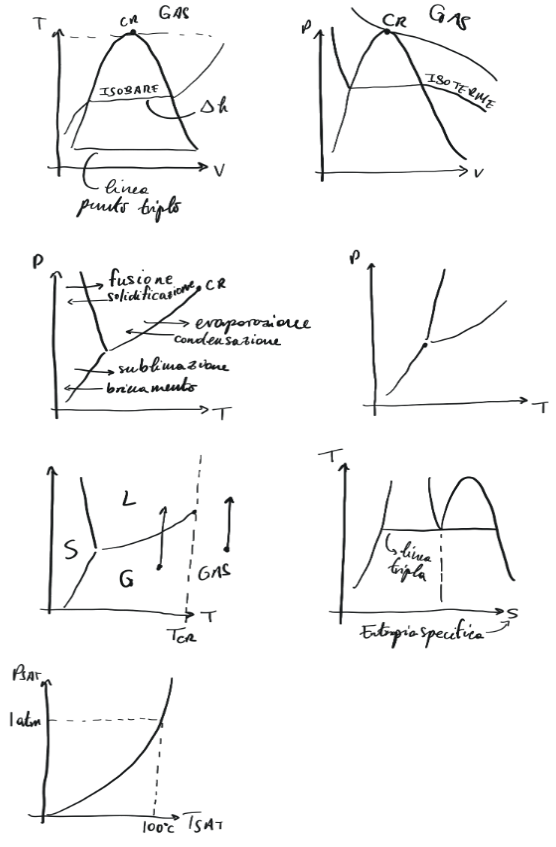 T
CR
GAS
ISOBARE
Δh
V
linea
punto triplo
P
CR
GAS
ISOTERME
V
P
fusione
solidificazione
CR
evaporazione
condensazione
sublimazione
brinamento
T
P
T
L
S
G
GAS
T
TCR
T
linea
tripla
S
Entropia specifica
PSAT
1 atm
100°C
TSAT